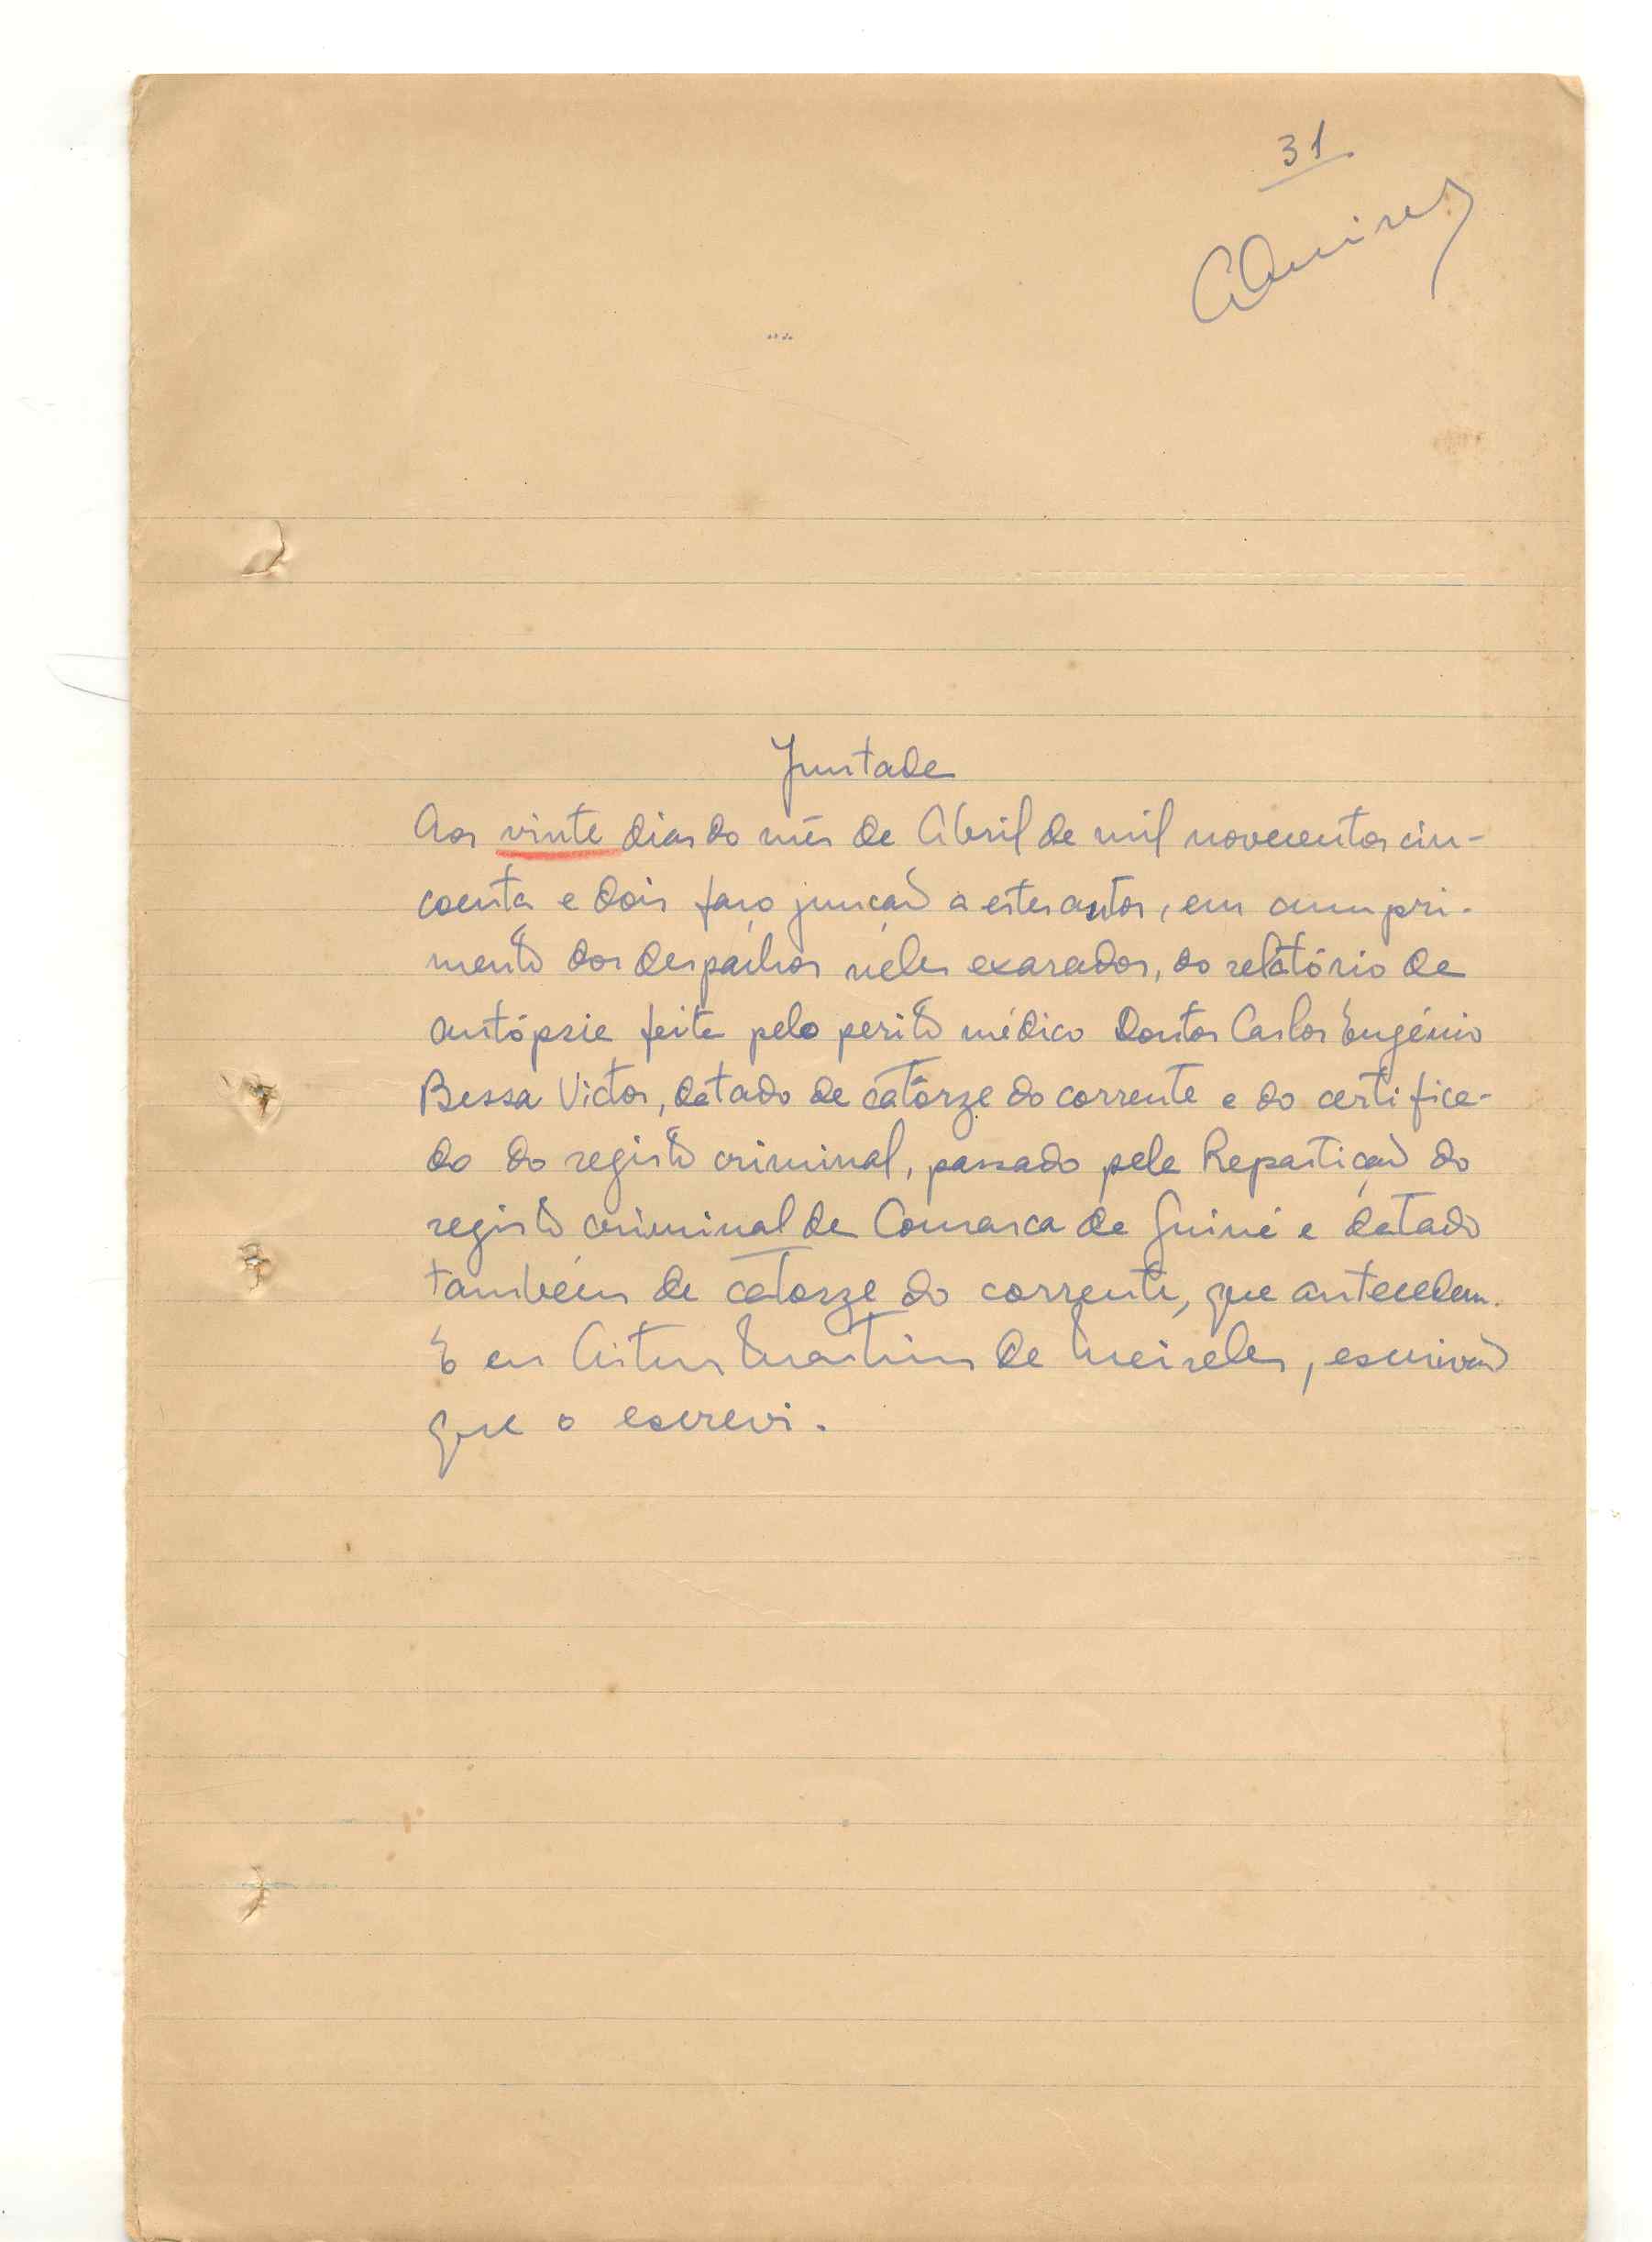 31
Juntada
Aos vinte dias do mês de Abril de mil novecentos cin-
coenta e dois faço junção a estes autos, em cumpri-
mento dos despachos nêles exarados, do relatório de
autópsia feita pelo perito médico Doutor Carlos Eugénio
Bessa Victor, datado de catôrze do corrente e do certifica-
do do registo criminal, passado pela Repartição do
registo criminal da Comarca da Guiné e datado
também de catorze do corrente, que antecedem.
E eu Artur Martins de Meireles, escrivão
que o escrevi.